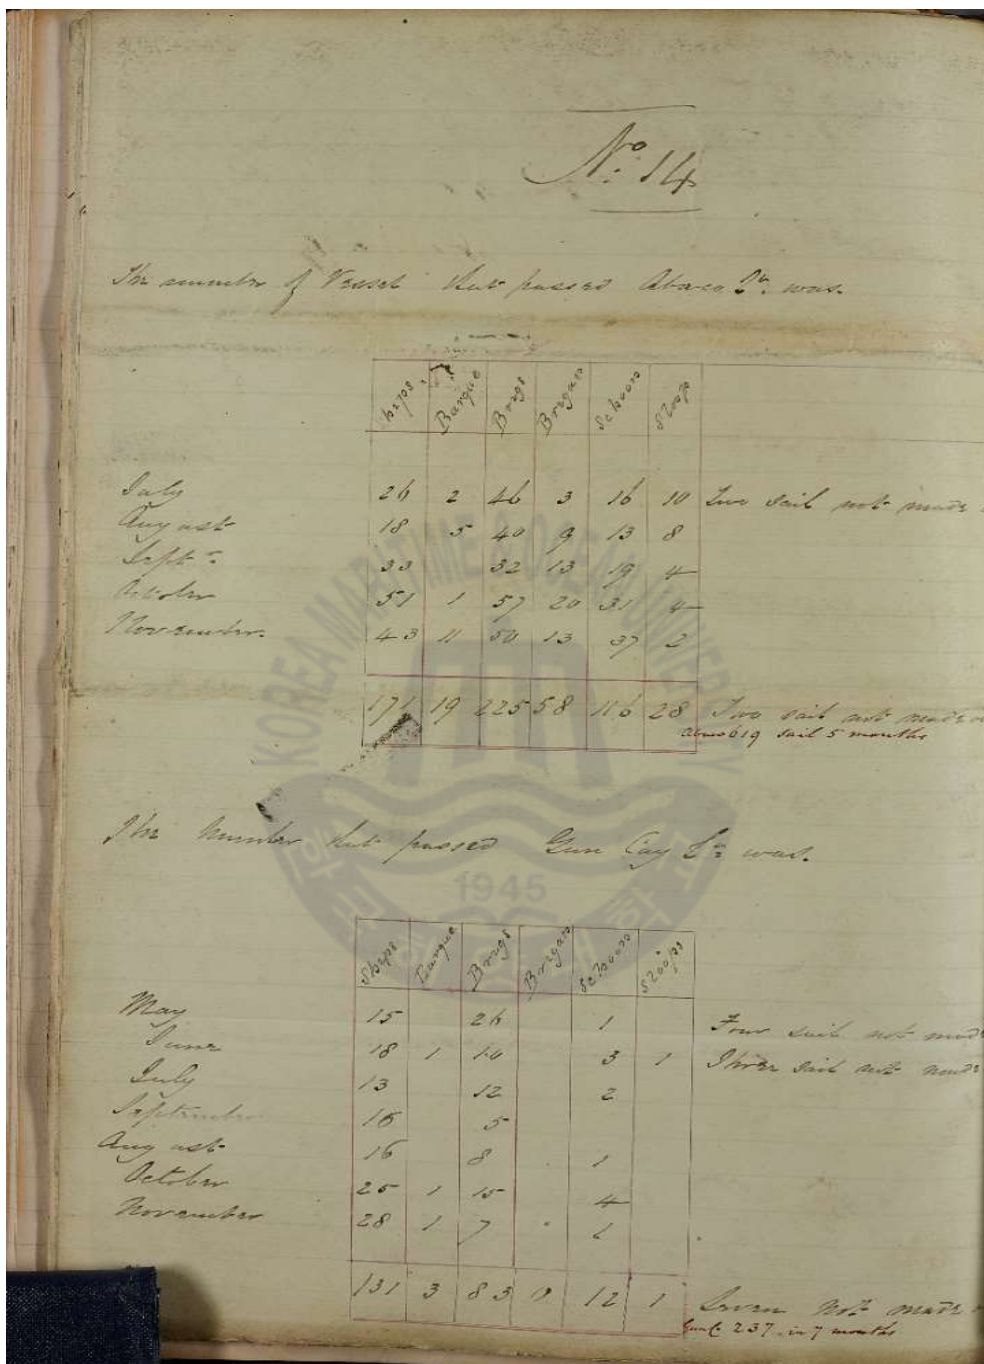 No. 14
The number of Vessel that passed Abaco Lt. was.
Ships Barque Brigs Brigan Schoons Sloops
July 26 2 46 3 16 10 Two sail not made
August 18 5 40 9 13 8
Septr. 33 32 13 19 4
October 51 1 57 20 31 4
November. 43 11 50 13 37 2
171 19 225 58 116 28 Two sail not made
619 sail 5 months
The Number that passed Gun Cay Lt. was.
Ships Barque Brigs Brigan Schoons Sloops
May 15 26 1 Four sail not made
June 18 1 10 3 1 Three sail not made
July 13 12 2
September 16 5
August 16 8 1
October 25 1 15 4
November 28 1 7 1
131 3 83 0 12 1 Seven not made
237 in 7 months
KOREA MARITIME & OCEAN UNIVERSITY
1945